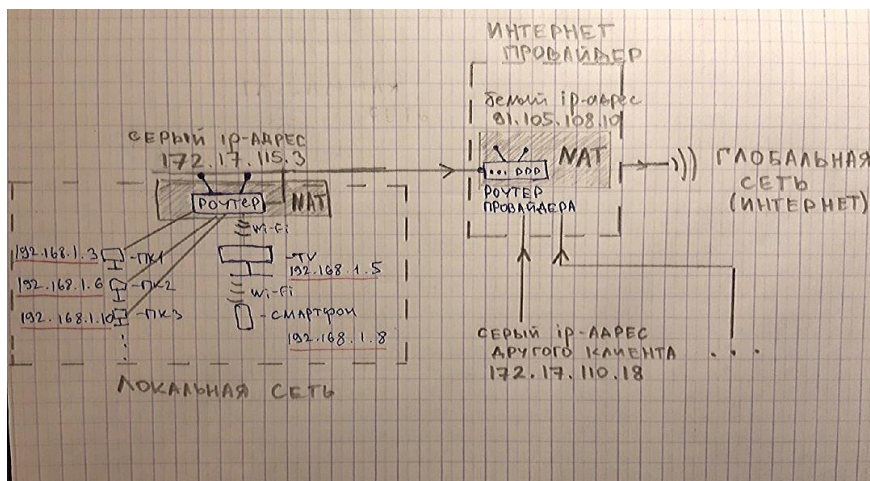 ИНТЕРНЕТ
ПРОВАЙДЕР
белый ip-адрес
91.105.108.10
NAT
РОУТЕР
ПРОВАЙДЕРА
ГЛОБАЛЬНАЯ
СЕТЬ
(ИНТЕРНЕТ)
СЕРЫЙ IP-АДРЕС
172.17.115.3
РОУТЕР
NAT
Wi-Fi
192.168.1.3
-ПК1
-TV
192.168.1.5
192.168.1.6
-ПК2
Wi-Fi
192.168.1.10
-ПК3
-СМАРТФОН
192.168.1.8
ЛОКАЛЬНАЯ СЕТЬ
СЕРЫЙ ip-АДРЕС
ДРУГОГО КЛИЕНТА
172.17.110.18